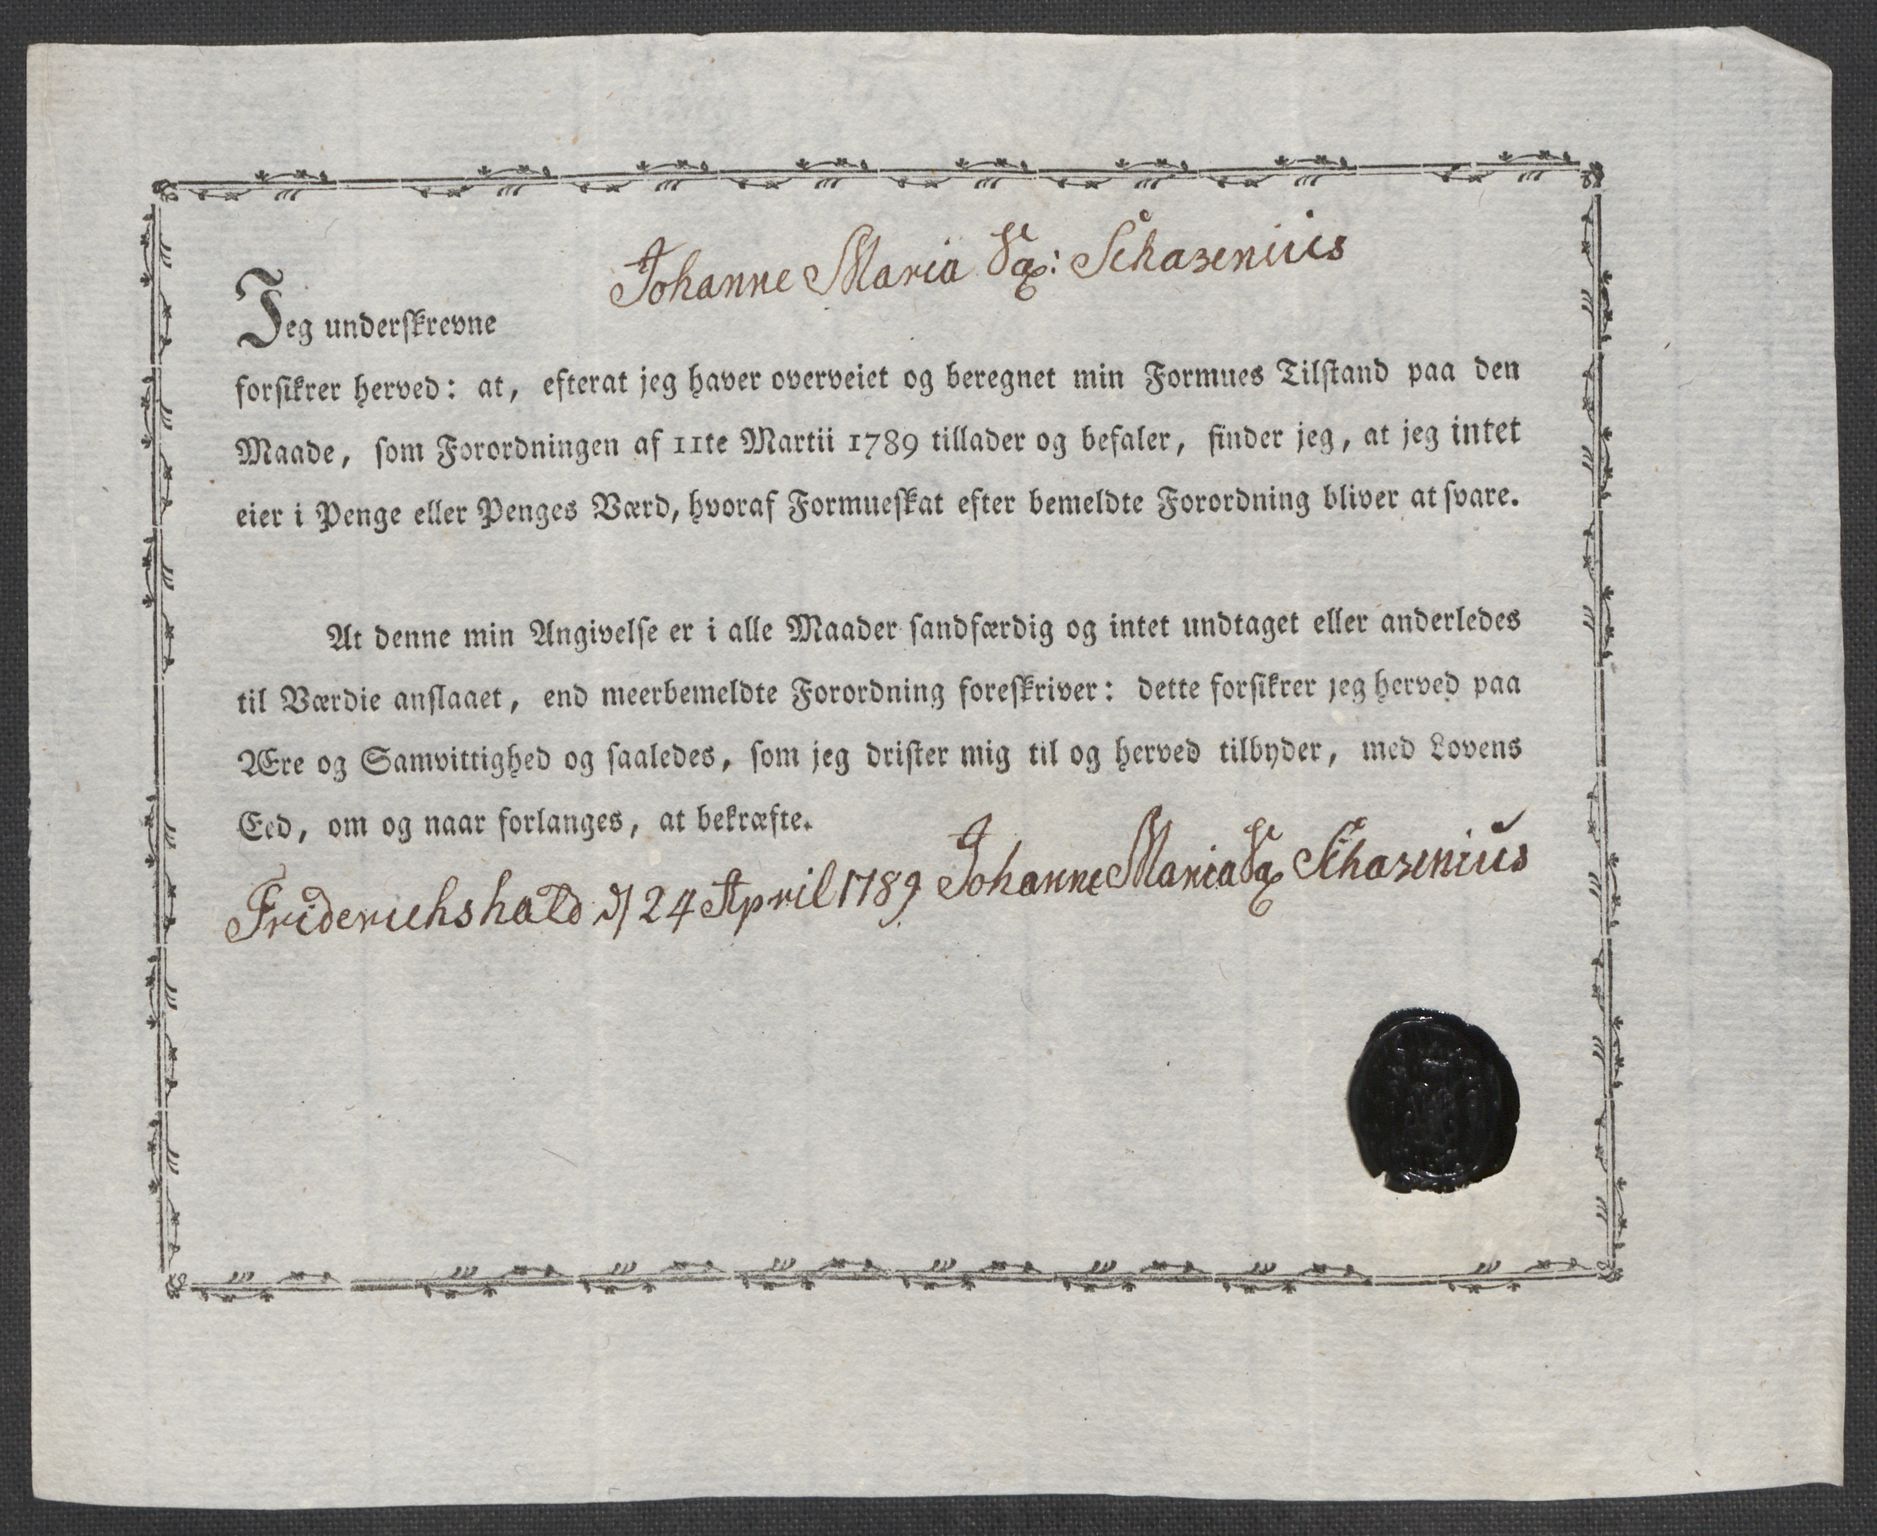 Johanne Maria Sax: Schasenius
Jeg underskrevne
forsikrer herved: at, efterat jeg haver overveiet og beregnet min Formues Tilstand paa den
Maade, som Forordningen af 11te Martii 1789 tillader og befaler, finder jeg, at jeg intet
eier i Penge eller Penges Værd, hvoraf Formueskat efter bemeldte Forordning bliver at svare.
At denne min Angivelse er i alle Maader sandfærdig og intet undtaget eller anderledes
til Værdie anslaaet, end meerbemeldte Forordning foreskriver: dette forsikrer jeg herved paa
Ære og Samvittighed og saaledes, som jeg drister mig til og herved tilbyder, med Lovens
Eed, om og naar forlanges, at bekræfte.
Friderichshald d 24 April 1789 Johanne Maria Schasenius